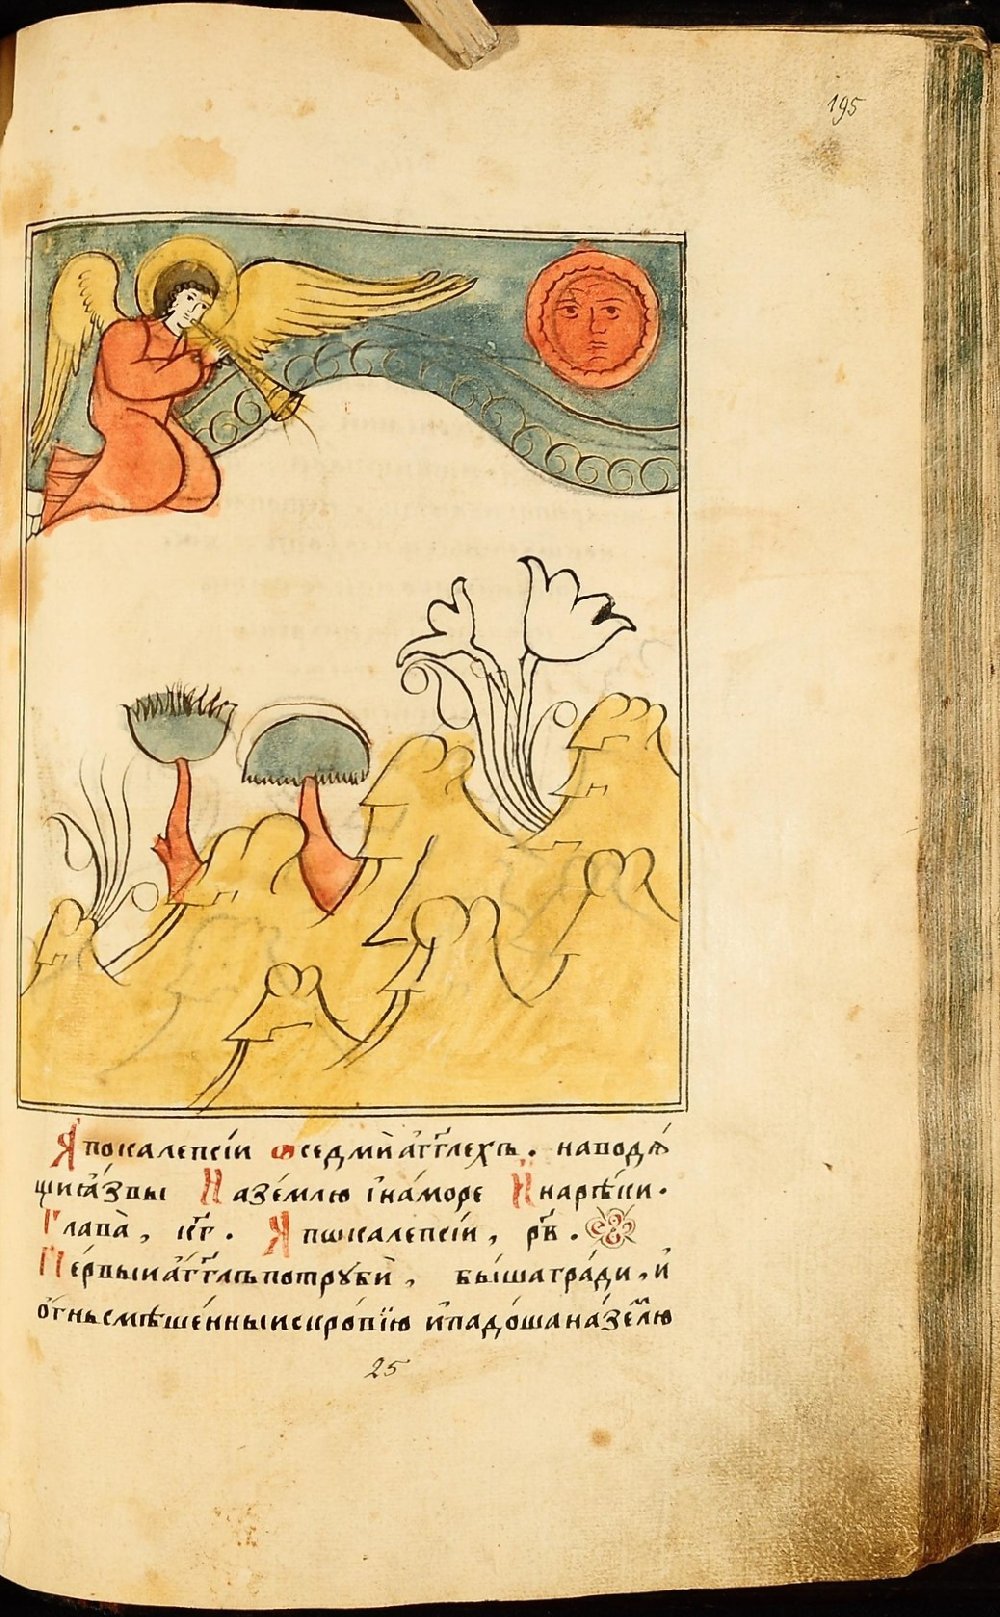 195
Апокалепсіи ѡседмѝ а҆́гг҃лехъ. наводѧ́
щиѩ҆́звы На зе́млю і҆на́море И҆ нарѣ́ки.
Глава̀, к҃г. Апѡкалепсіи, р҃в.
Пе́рвыи а҆́гг҃лъ потрꙋбѝ, бы́ша гра́ди, и҆
о҆́гнь смѣше́нны искро́вїю и҆падо́ша на́земⷧ҇ю
25